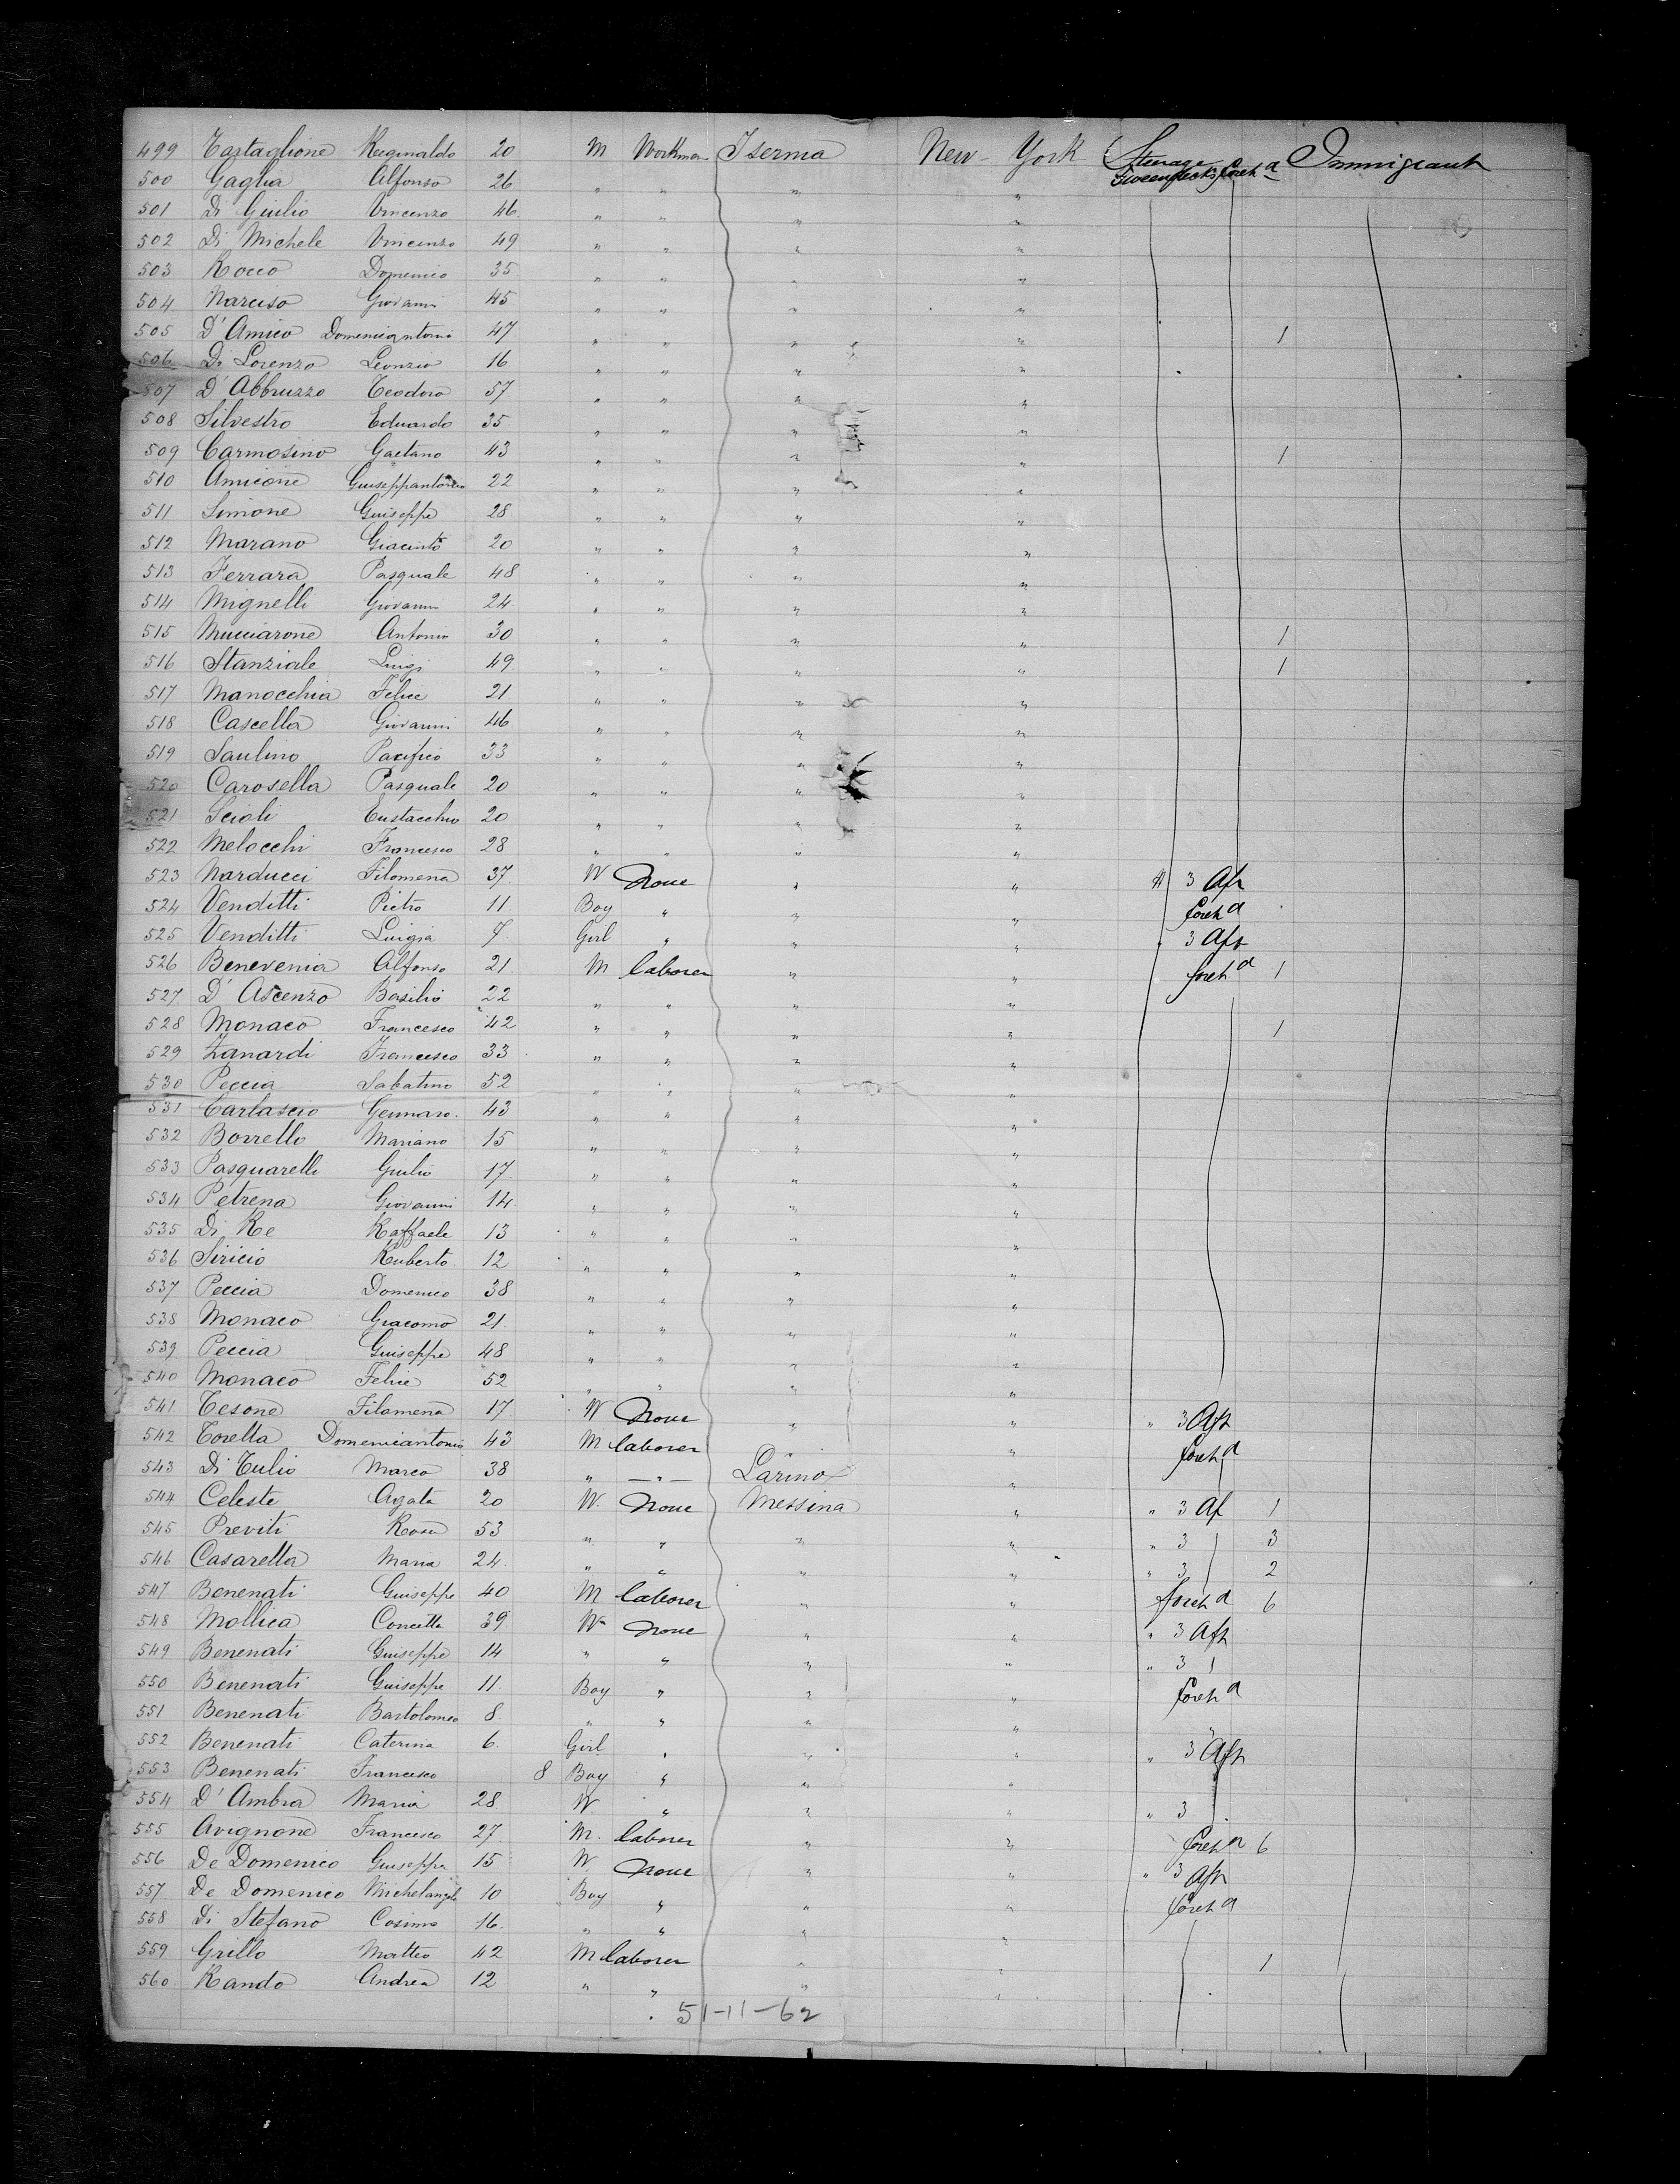 499 Tartaglione Reginaldo 20 M Workman Isernia New-York Steerage Immigrant
500 Gaglia Alfonso 26 " " " " Tweendecks foreh a
501 Di Giulio Vincenzo 46 " " " "
502 Di Michele Vincenzo 49 " " " "
503 Rocco Domenico 35 " " " "
504 Narciso Giovanni 45 " " " "
505 D'Amico Domenicantonio 47 " " " " 1
506 Di Lorenzo Leonzio 16 " " " "
507 D'Abbruzzo Teodoro 57 " " " "
508 Silvestro Eduardo 35 " " " "
509 Carmosino Gaetano 43 " " " " 1
510 Amicone Guiseppantonio 22 " " " "
511 Simone Guiseppe 28 " " " "
512 Marano Giacinto 20 " " " "
513 Ferrara Pasquale 48 " " " "
514 Mignelli Giovanni 24 " " " "
515 Mucciarone Antonio 30 " " " " 1
516 Stanziale Luigi 49 " " " " 1
517 Manocchia Felice 21 " " " "
518 Cascella Giovanni 46 " " " "
519 Saulino Pacifico 33 " " " "
520 Carosella Pasquale 20 " " " "
521 Scioli Eustacchio 20 " " " "
522 Melocchi Francesco 28 " " " "
523 Narducci Filomena 37 W None " " 3 Aft
524 Venditti Pietro 11 Boy " " " foreh a
525 Venditti Luigia 7 Girl " " " " 3 Aft
526 Benevenia Alfonso 21 M laborer " " foreh a 1
527 D'Ascenzo Basilio 22 " " " "
528 Monaco Francesco 42 " " " " 1
529 Zanardi Francesco 33 " " " "
530 Peccia Sabatino 52 " " " "
531 Carlascio Gennaro 43 " " " "
532 Borrello Mariano 15 " " " "
533 Pasquarelli Giulio 17 " " " "
534 Petrena Giovanni 14 " " " "
535 Di Re Raffaele 13 " " " "
536 Siricio Ruberto 12 " " " "
537 Peccia Domenico 38 " " " "
538 Monaco Giacomo 21 " " " "
539 Peccia Guiseppe 48 " " " "
540 Monaco Felice 52 " " " "
541 Tesone Filomena 17 W None " " " 3 Aft
542 Toretta Domenicantonio 43 M laborer " " foreh a
543 Di Tulio Marco 38 " " Larino "
544 Celeste Agata 20 W None Messina " " 3 Af 1
545 Previti Rosa 53 " " " " " 3 3
546 Casaretta Maria 24 " " " " " 3 2
547 Benenati Guiseppe 40 M laborer " " foreh a 6
548 Mollica Concetta 39 W None " " " 3 Aft
549 Benenati Guiseppe 14 " " " " " 3
550 Benenati Guiseppe 11 Boy " " " foreh a
551 Benenati Bartolomeo 8 " " " "
552 Benenati Caterina 6 Girl " " " " 3 Aft
553 Benenati Francesco 8 Boy " " "
554 D'Ambra Maria 28 W " " " " 3
555 Avignone Francesco 27 M. laborer " " foreh a 6
556 De Domenico Guiseppa 15 W None " " " 3 Aft
557 De Domenico Michelangelo 10 Boy " " " foreh a
558 Di Stefano Cosimo 16 " " " "
559 Grillo Matteo 42 M laborer " " 1
560 Rando Andrea 12 " " " "
51-11-62